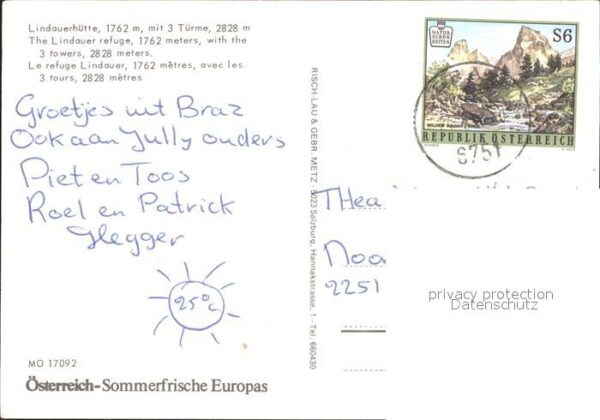 Lindauerhütte, 1762 m, mit 3 Türme, 2828 m
The Lindauer refuge, 1762 meters, with the
3 towers, 2828 meters.
Le refuge Lindauer, 1762 mètres, avec les
3 tours, 2828 mètres
Groetjes uit Braz
Ook aan Jully ouders
Piet en Toos
Roel en Patrick
Hegger
25°C
MO 17092
Österreich-Sommerfrische Europas
RISCH-LAU & GEBR. METZ · 5023 Salzburg, Hannakstrasse, 1 - Tel. 660430
NATUR
SCHÖN
HEITEN
S6
REPUBLIK ÖSTERREICH
6751
THea
Noo
2251
privacy protection
Datenschutz